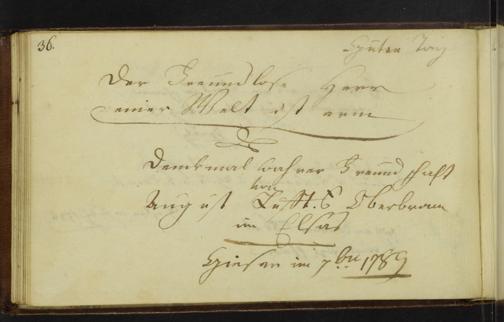 36.
Guten Tag
Der Freundlose Herr
einer Welt ist arm
Denkmal wahrer Freundschaft
August von Oberbronn
im Elsas
Giesen im 7br 1789